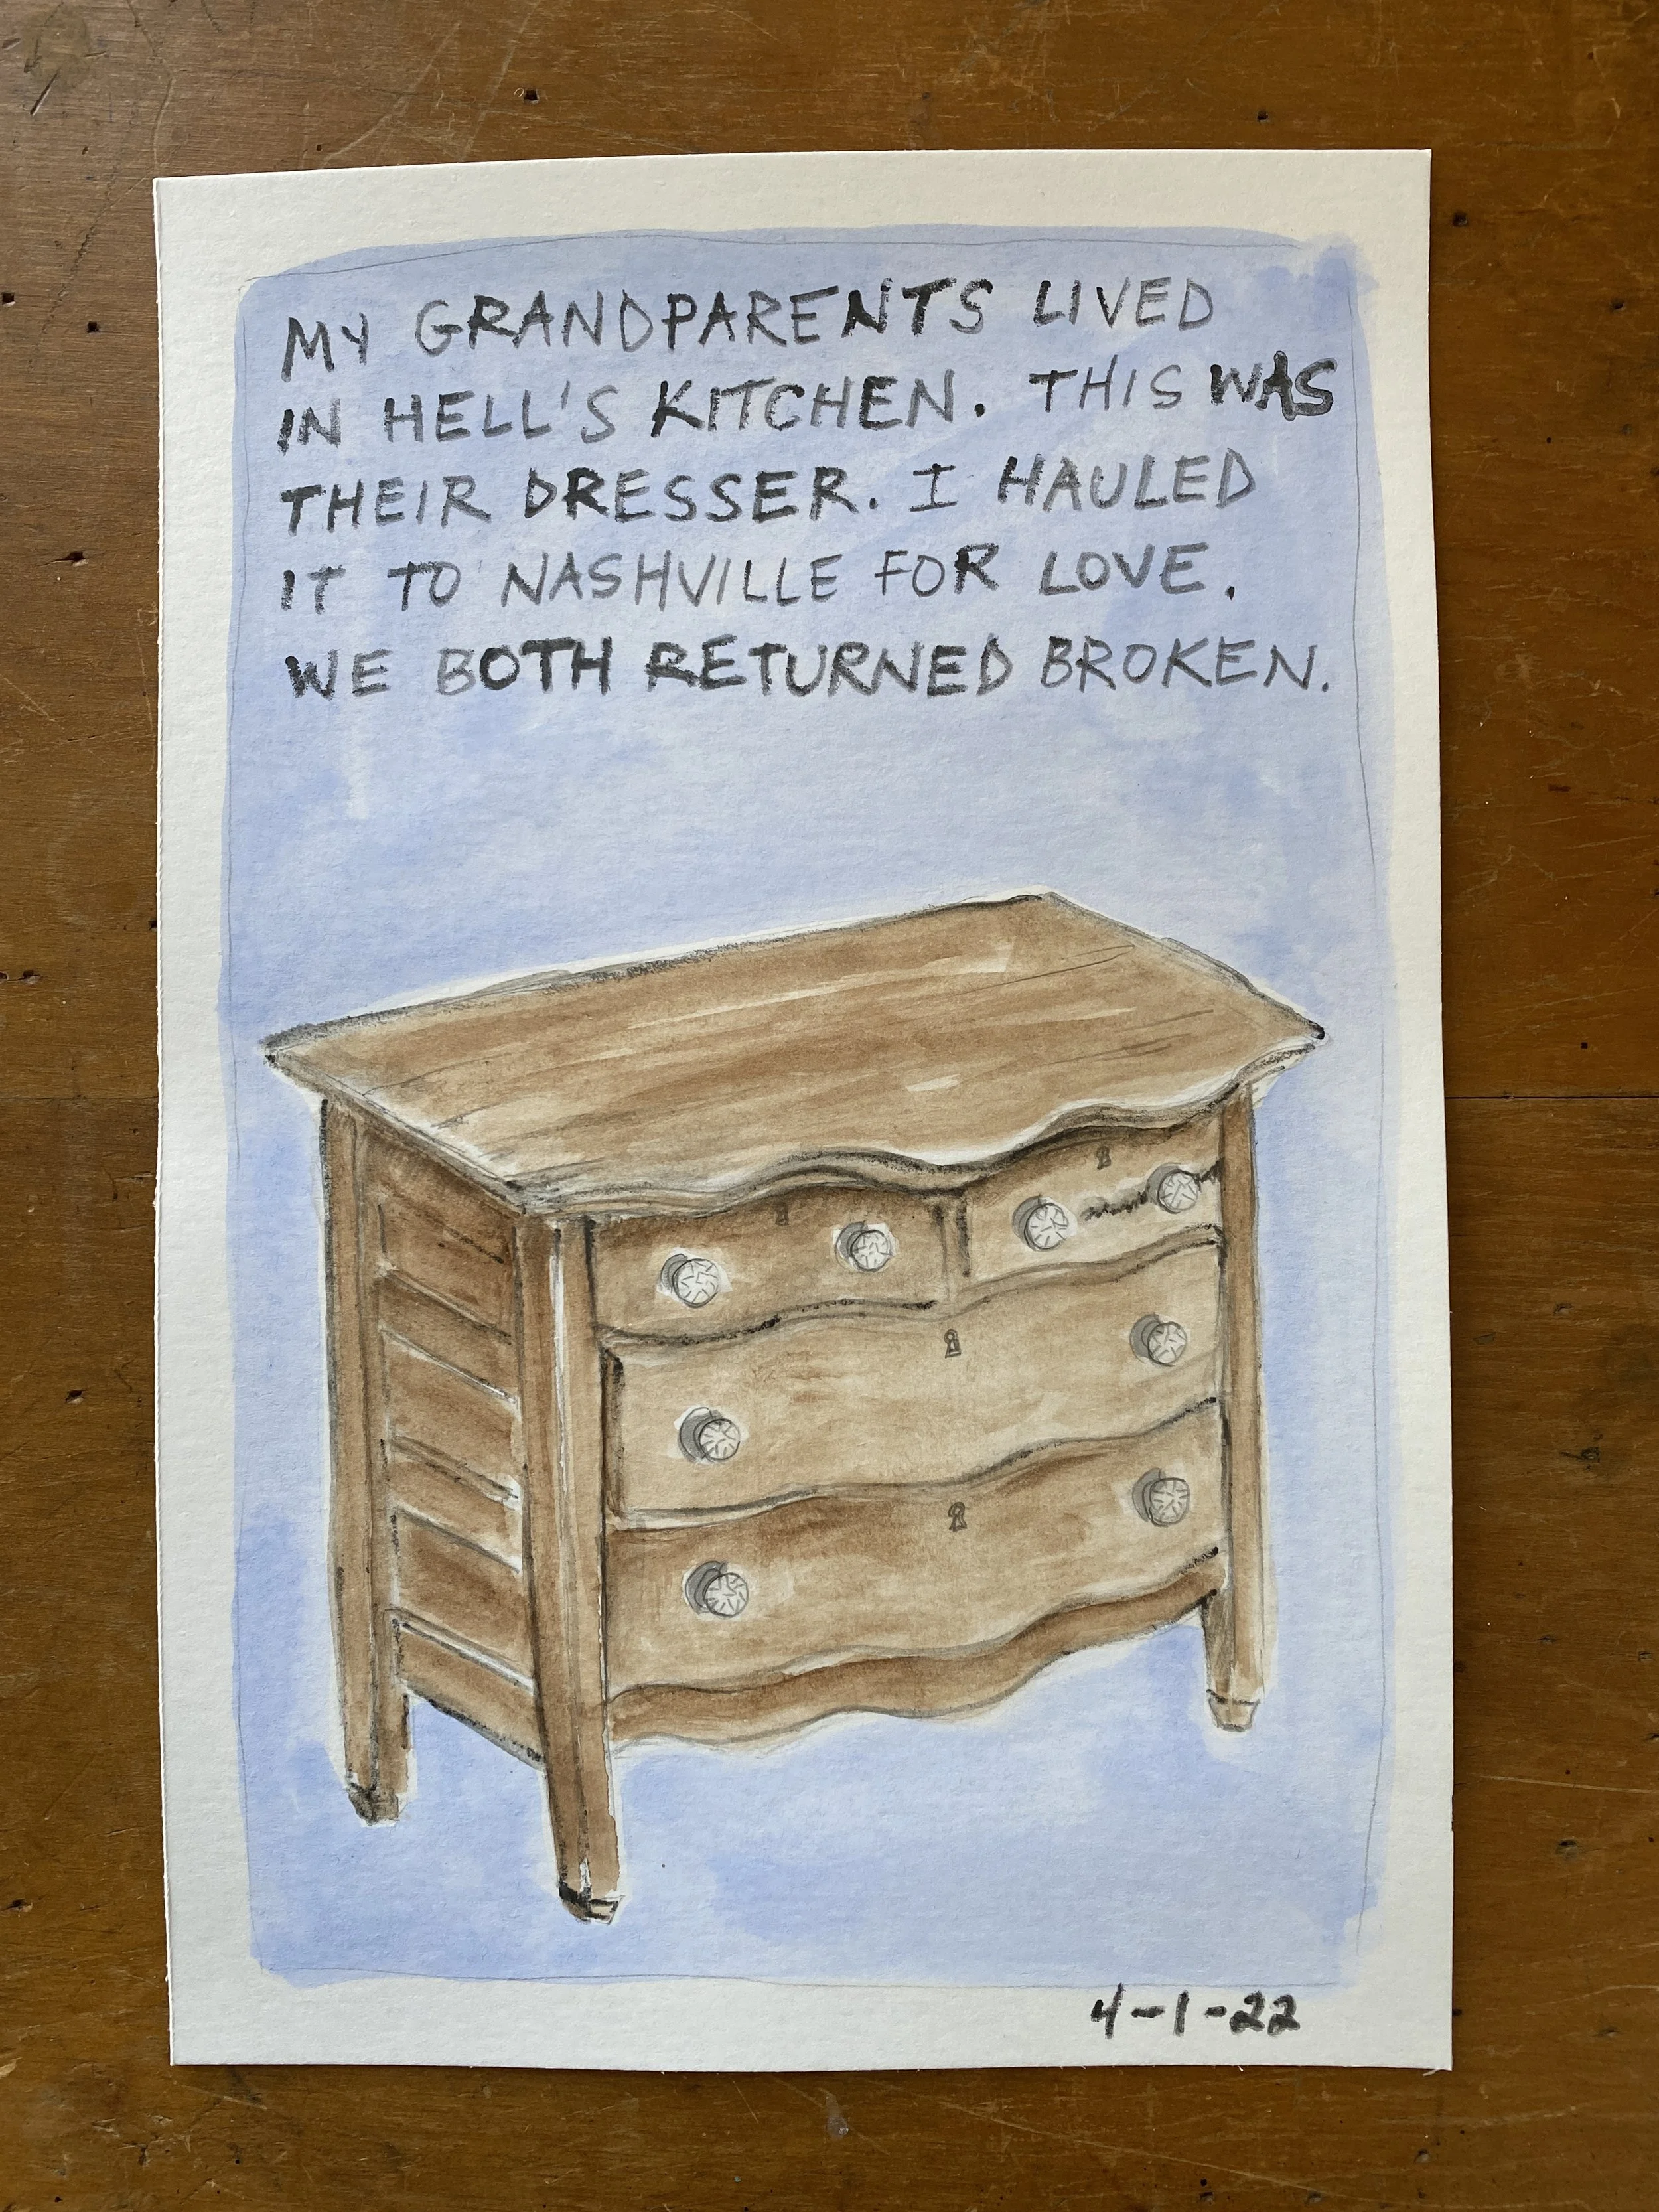 MY GRANDPARENTS LIVED
IN HELL'S KITCHEN. THIS WAS
THEIR DRESSER. I HAULED
IT TO NASHVILLE FOR LOVE.
WE BOTH RETURNED BROKEN.
4-1-22